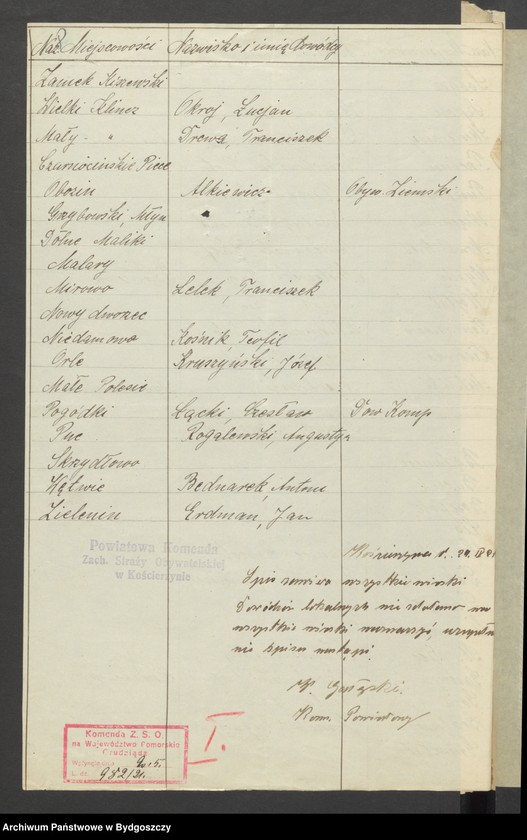 Naz. Miejscowości Nazwisko i imię Dowódcy
Zamek Kiszewski
Wielki Klincz Okroj, Lucjan
Mały " Drewa, Franciszek
Czarnocińskie Piece
Obozin Alkiewicz Obyw. Ziemski
Grzybowski, Młyn
Dolne Maliki
Malary
Mirowo Lelek, Franciszek
Nowy dworzec
Niedamowo Kośnik, Teofil
Orle Kruszyński, Józef
Małe Polesie
Pogódki Łącki Czesław Dow Komp
Puc Rogalewski, Augustyn
Skrzydłowo
Wętwie Bednarek, Antoni
Zielenin Erdman, Jan
Powiatowa Komenda
Zach. Straży Obywatelskiej
w Kościerzynie
Kościerzyna d. 20.
Spis zawiera wszystkie wioski
Dowódców lokalnych nie zdołano we
wszystkie wioski
nie spisu
Kom. Powiatowy
Komenda Z. S. O
na Województwo Pomorskie
Grudziądz
L. dz. 982/21.
I.
Archiwum Państwowe w Bydgoszczy